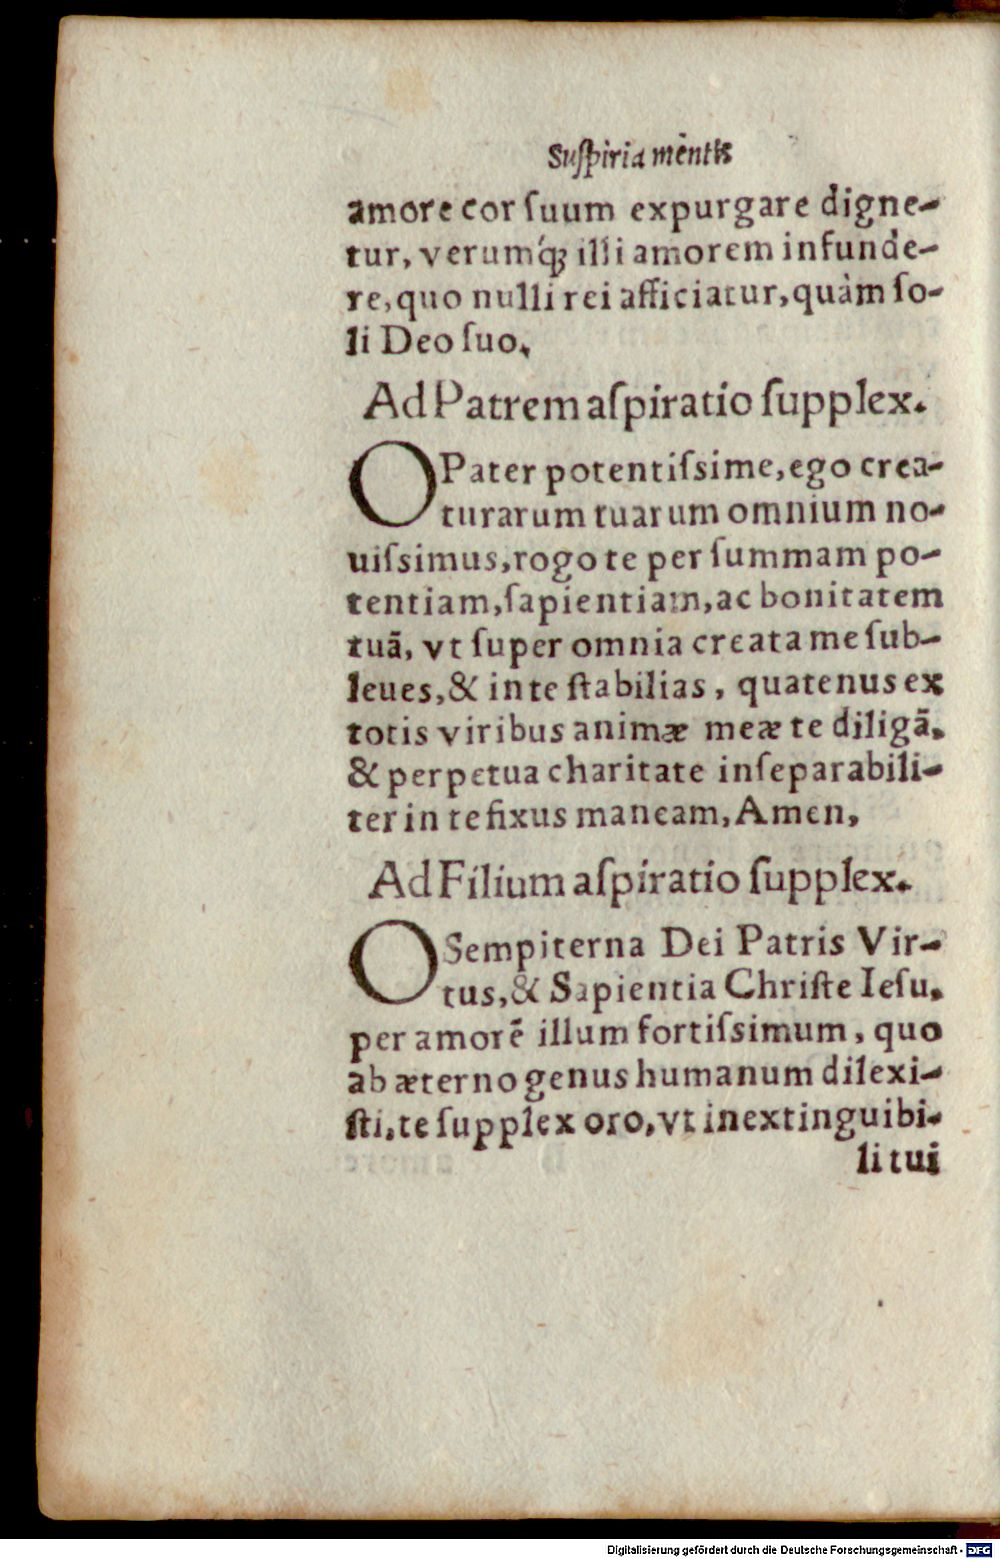 Suſpiria mẽntis
amore cor ſuum expurgare digne-
tur, verumq́; illi amorem infunde-
re, quo nulli rei afficiatur, quàm ſo-
li Deo ſuo.
Ad Patrem aſpiratio ſupplex.
O Pater potentiſsime, ego crea-
turarum tuarum omnium no-
uiſsimus, rogo te per ſummam po-
tentiam, ſapientiam, ac bonitatem
tuā, vt ſuper omnia creata me ſub-
leues, & in te ſtabilias, quatenus ex
totis viribus animæ meæ te diligā,
& perpetua charitate inſeparabili-
ter in te fixus maneam, Amen,
Ad Filium aſpiratio ſupplex.
O Sempiterna Dei Patris Vir-
tus, & Sapientia Chriſte Ieſu,
per amorē illum fortiſsimum, quo
ab æterno genus humanum dilexi-
ſti, te ſupplex oro, vt inextinguibi-
li tui
Digitalisierung gefördert durch die Deutsche Forschungsgemeinschaft - DFG